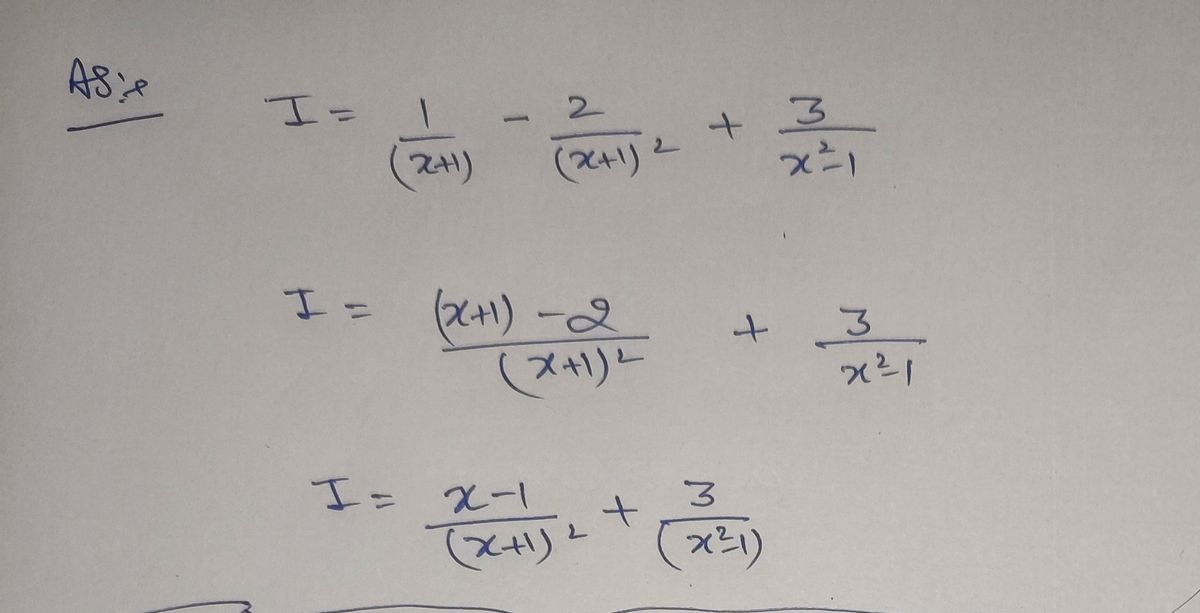 AS:→
I = 1/(x+1) - 2/(x+1)² + 3/x²-1
I = (x+1) - 2/(x+1)² + 3/x²-1
I = x-1/(x+1)² + 3/(x²-1)